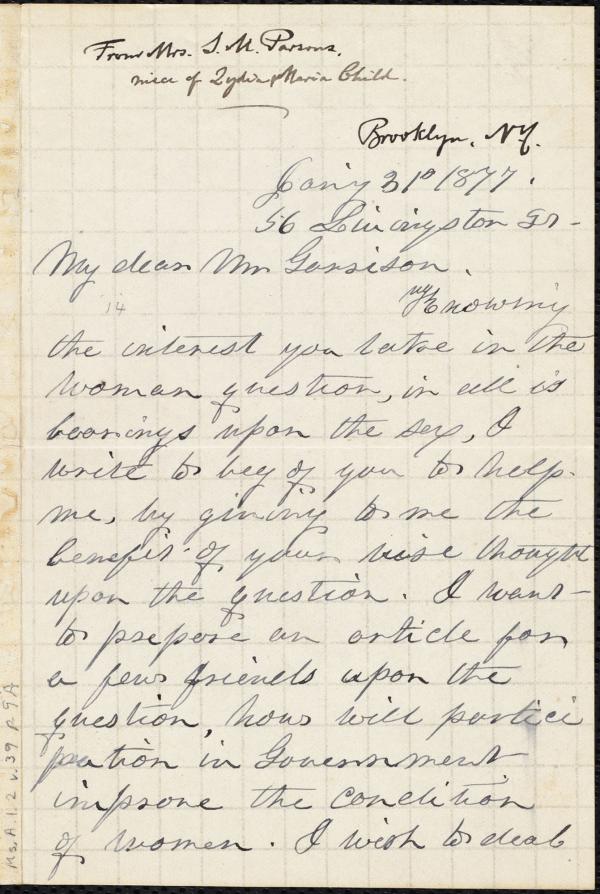 From Mrs. S. M. Parsons,
niece of Lydia Maria Child.
Brooklyn, NY.
Jan'y 31st 1877.
56 Livingston St-
My dear Mr Garrison.
14
Knowing
the interest you take in the
woman question, in all is
bearings upon the sex, I
write to beg of you to help
me, by giving to me the
benefit of your wise thought
upon the question. I want
to prepare an article for
a few friends upon the
question, how will partici
pation in Government
improve the condition
of women. I wish to deal
Ms. A. 1. 2 v. 39 p. 9A